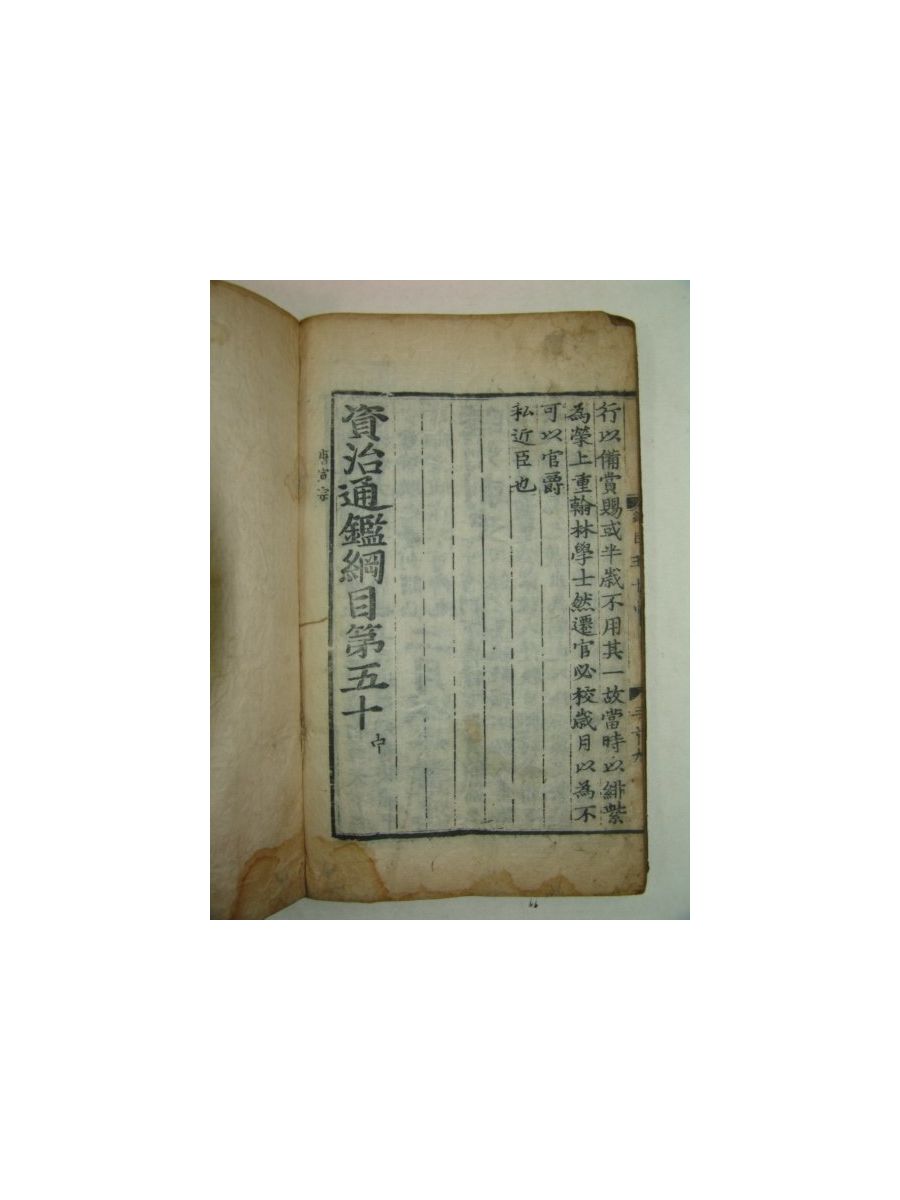 行以備賞賜或半歲不用其一故當時以緋紫
為榮上重翰林學士然遷官必校歲月以為不
可以官爵
私近臣也
資治通鑑綱目第五十中
唐宣宗